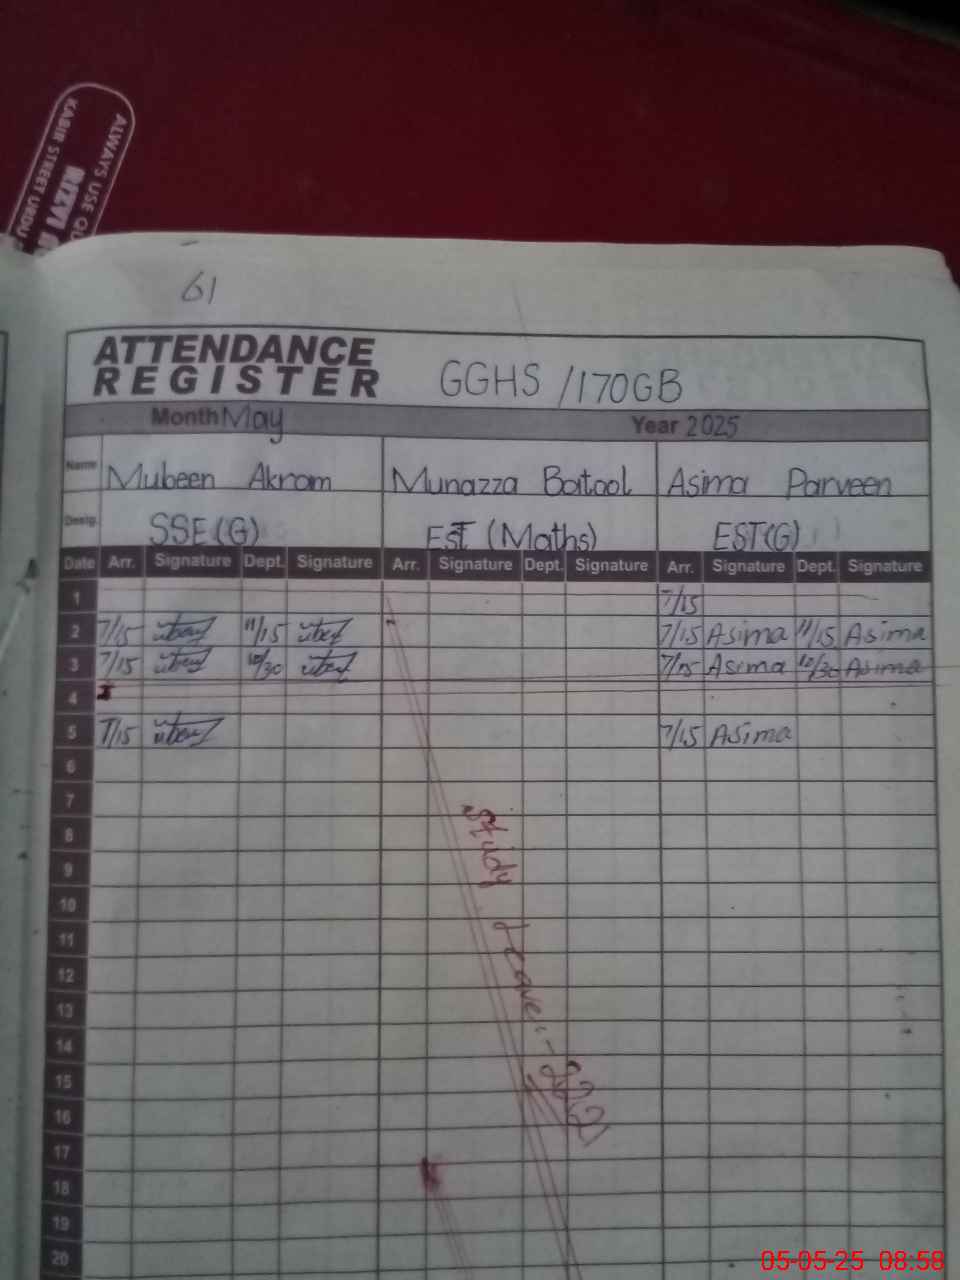 ALWAYS USE QU
KABIR STREET URDU
RIZVI
61
ATTENDANCE
REGISTER
GGHS /170GB
Month May Year 2025
Name Mubeen Akram Munazza Batool Asima Parveen
Desig. SSE(G) EST (Maths) EST(G)
Date Arr. Signature Dept. Signature Arr. Signature Dept. Signature Arr. Signature Dept. Signature
1 7/15
2 7/15 11/15 7/15 Asima 11/15 Asima
3 7/15 10/30 7/15 Asima 10/30 Asima
4
5 7/15 7/15 Asima
6
7
8
9
10
11
12
13
14
15
16
17
18
19
20
Study Leave
05-05-25 08:58